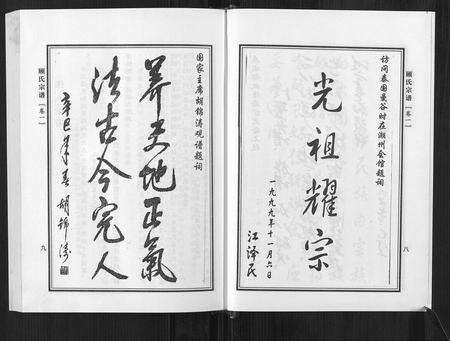 顾氏宗谱【卷一】
访问泰国曼谷时在潮州会馆题词
光祖耀宗
一九九九年十一月六日
江泽民
八
国家主席胡锦涛观谱题词
养天地正气
法古今完人
辛巳年春 胡锦涛
九
顾氏宗谱【卷一】